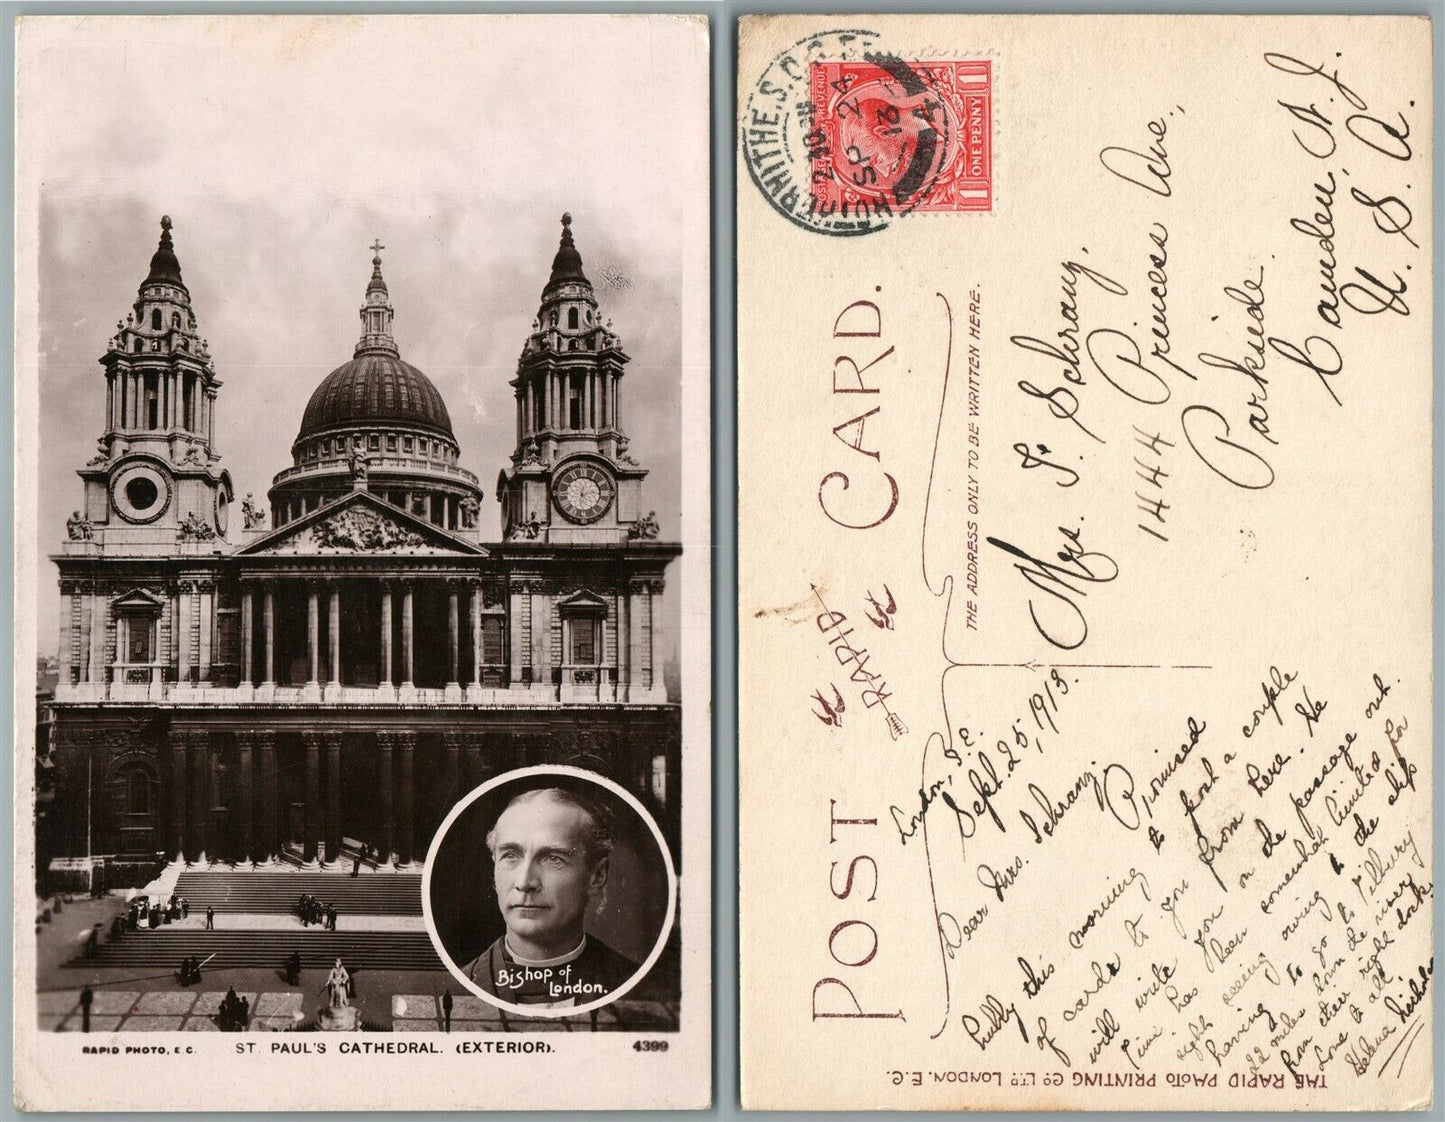 Bishop of
London.
RAPID PHOTO, E.C. ST. PAUL'S CATHEDRAL. (EXTERIOR). 4399
POST CARD.
RAPID
THE ADDRESS ONLY TO BE WRITTEN HERE.
THE RAPID PHOTO PRINTING CO LTD LONDON. E.C.
ROTHERHITHE. S.O. S.E.
SP 24
13
POSTAGE REVENUE
ONE PENNY
1 1
Mrs. J. Schranz,
1444 Princess Ave.,
Parkside.
Camden, N. J.
U. S. A.
London, S.E.
Sept. 25, 1913.
Dear Mrs. Schranz.
Promised
hubby this morning to post a couple
of cards to you from here. He
will write you on the passage out.
Time has been somewhat limited for
right seeing owing to the ship
having to go to Tilbury
22 miles down the river
from other right dock.
Love to all
Helena